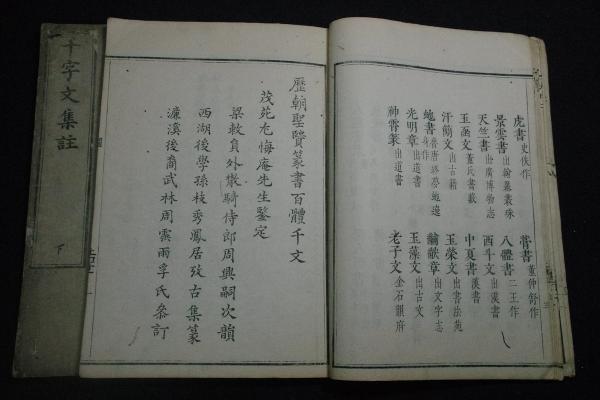 虎書 史佚作 書 董仲舒作
景雲書 出翰墨叢珠 八體書 二王作
天竺書 出廣博物志 酉斗文 出漢書
玉函文 董氏書載 中夏書 漢書
汗簡文 出古籍 玉榮文 出書法苑
書 魯唐終夢 遶身作 章 出文字志
光明章 出道書 玉藻文 出古文
神霄篆 出道書 老子文 金石韻府
歷朝聖賢篆書百體千文
茂苑尤悔庵先生鑒定
梁敕員外散騎侍郎周興嗣次韻
西湖後學孫枝秀鳳居攷古集篆
濂溪後裔武林周雲雨孚氏叅訂
千字文集註
下